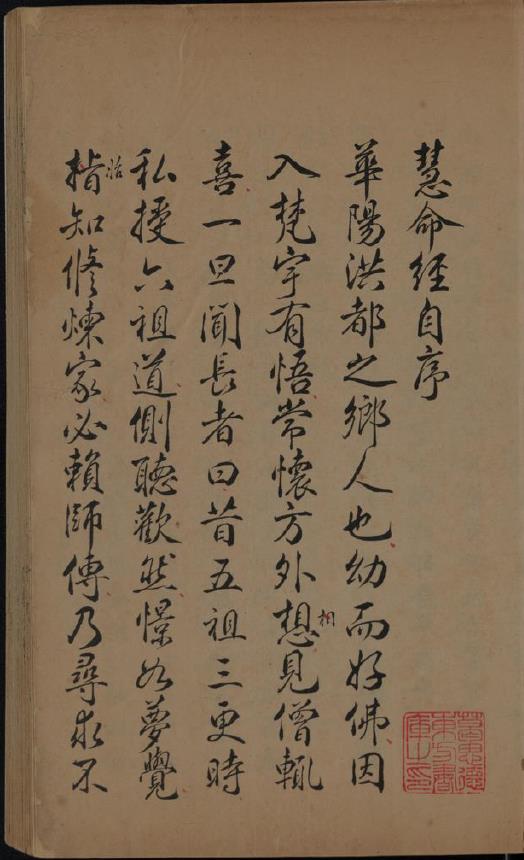 慧命經自序
華陽洪都之鄉人也幼而好佛因
入梵宇有悟常懷方外想見僧輒
相
喜一旦聞長者曰昔五祖三更時
私授六祖道側聽歡然憬如夢覺
指知修煉家必賴師傳乃尋求不
葛思德
東方書
庫之印